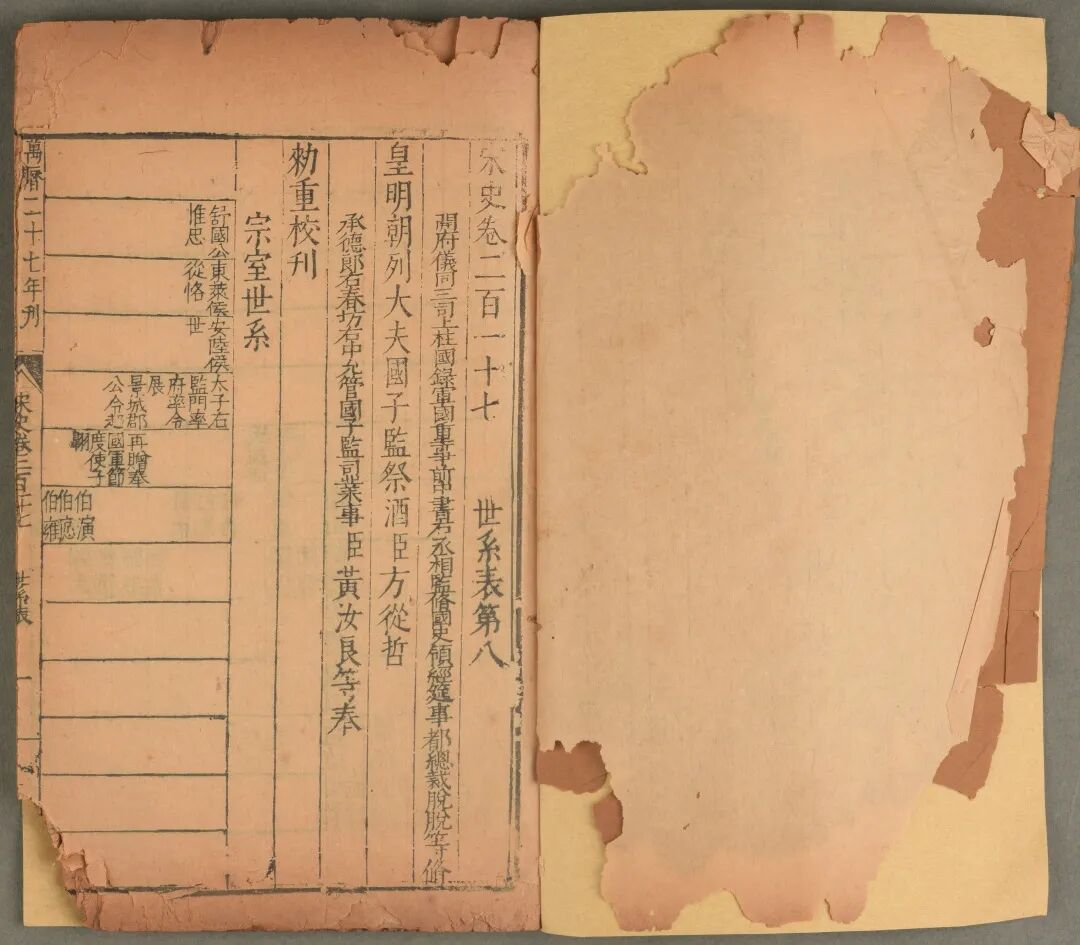 宋史卷二百一十七　世系表第八
開府儀同三司上柱國錄軍國重事前中書右丞相監脩國史領經筵事都總裁脫脫等脩
皇明朝列大夫國子監祭酒臣方從哲
承德郎右春坊右中允管國子監司業事臣黃汝良等奉
勑重校刊
宗室世系
舒國公東萊侯安陸侯
惟忠　從恪　世
太子右
監門率
府率令
展
景城郡
公令超
再贈奉
國軍節
度使子
翺
伯演
伯㥶
伯雍
萬曆二十七年刊
宋史卷二百十七
世系表
一